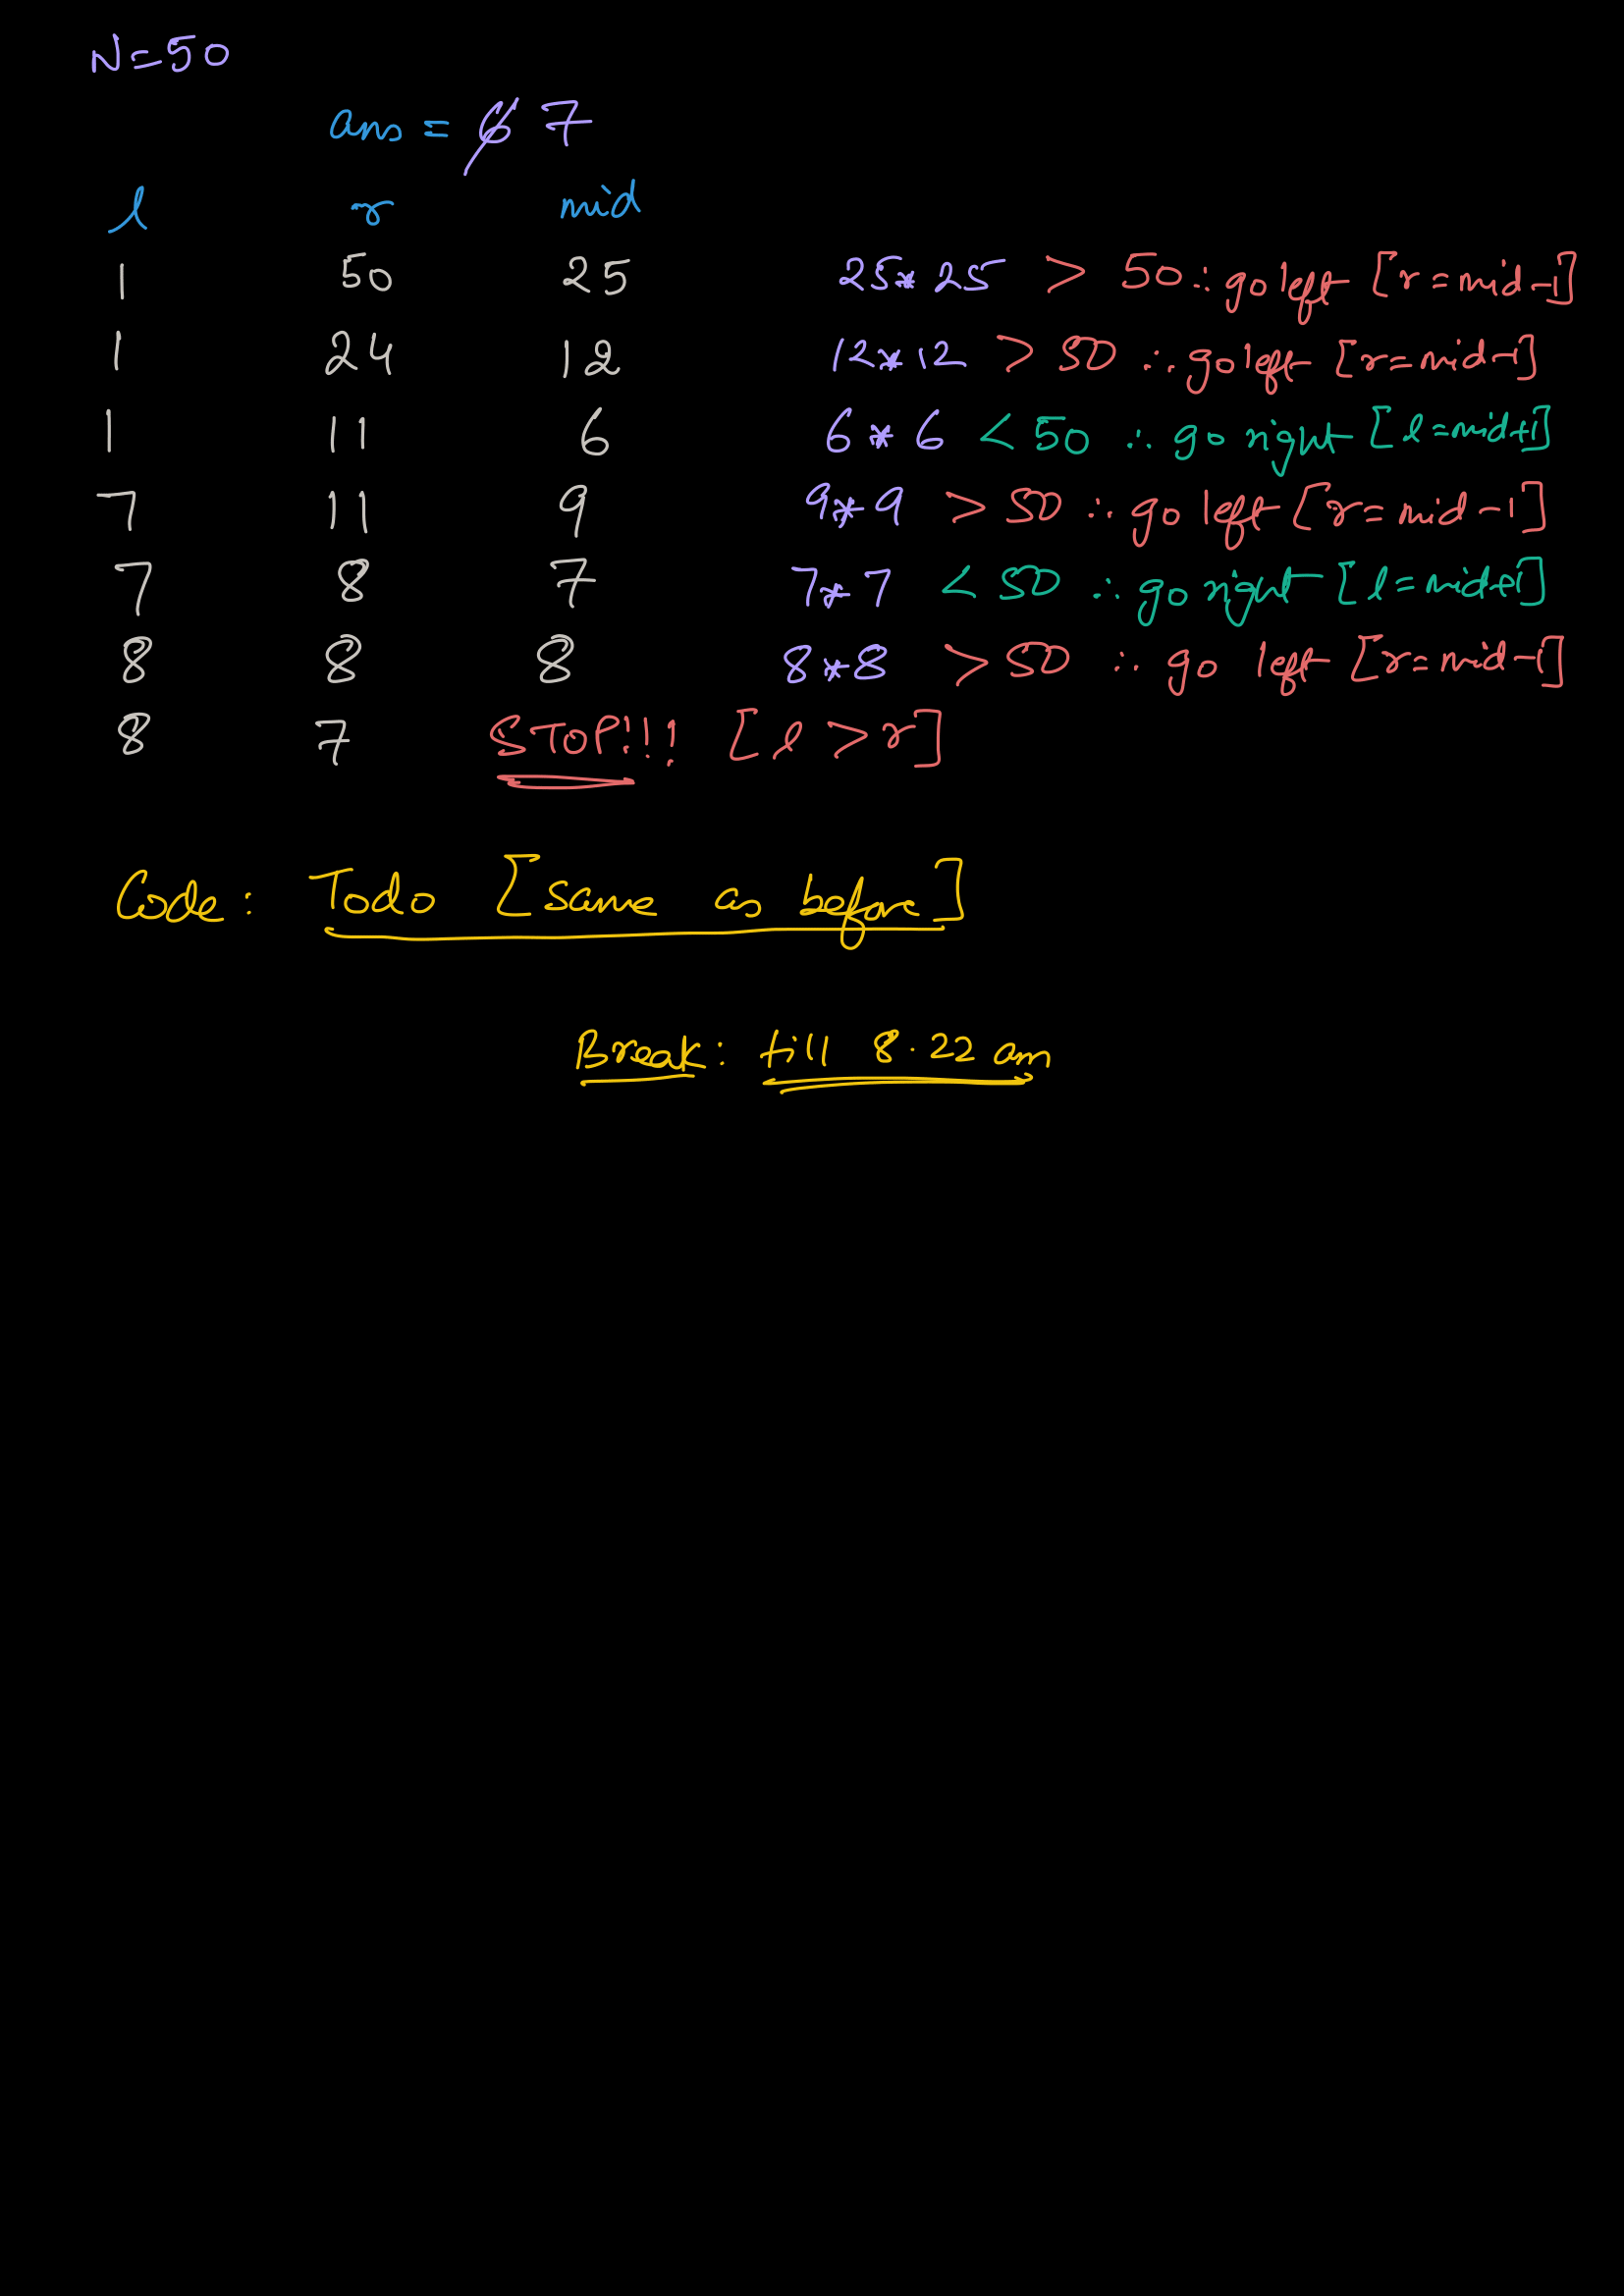 N=50
ans = 6 7
l r mid
1 50 25 25*25 > 50 ∴ go left [r=mid-1]
1 24 12 12*12 > 50 ∴ go left [r=mid-1]
1 11 6 6*6 < 50 ∴ go right [l=mid+1]
7 11 9 9*9 > 50 ∴ go left [r=mid-1]
7 8 7 7*7 < 50 ∴ go right [l=mid+1]
8 8 8 8*8 > 50 ∴ go left [r=mid-1]
8 7 STOP!!! [l > r]
Code: Todo [same as before]
Break: till 8.22 am